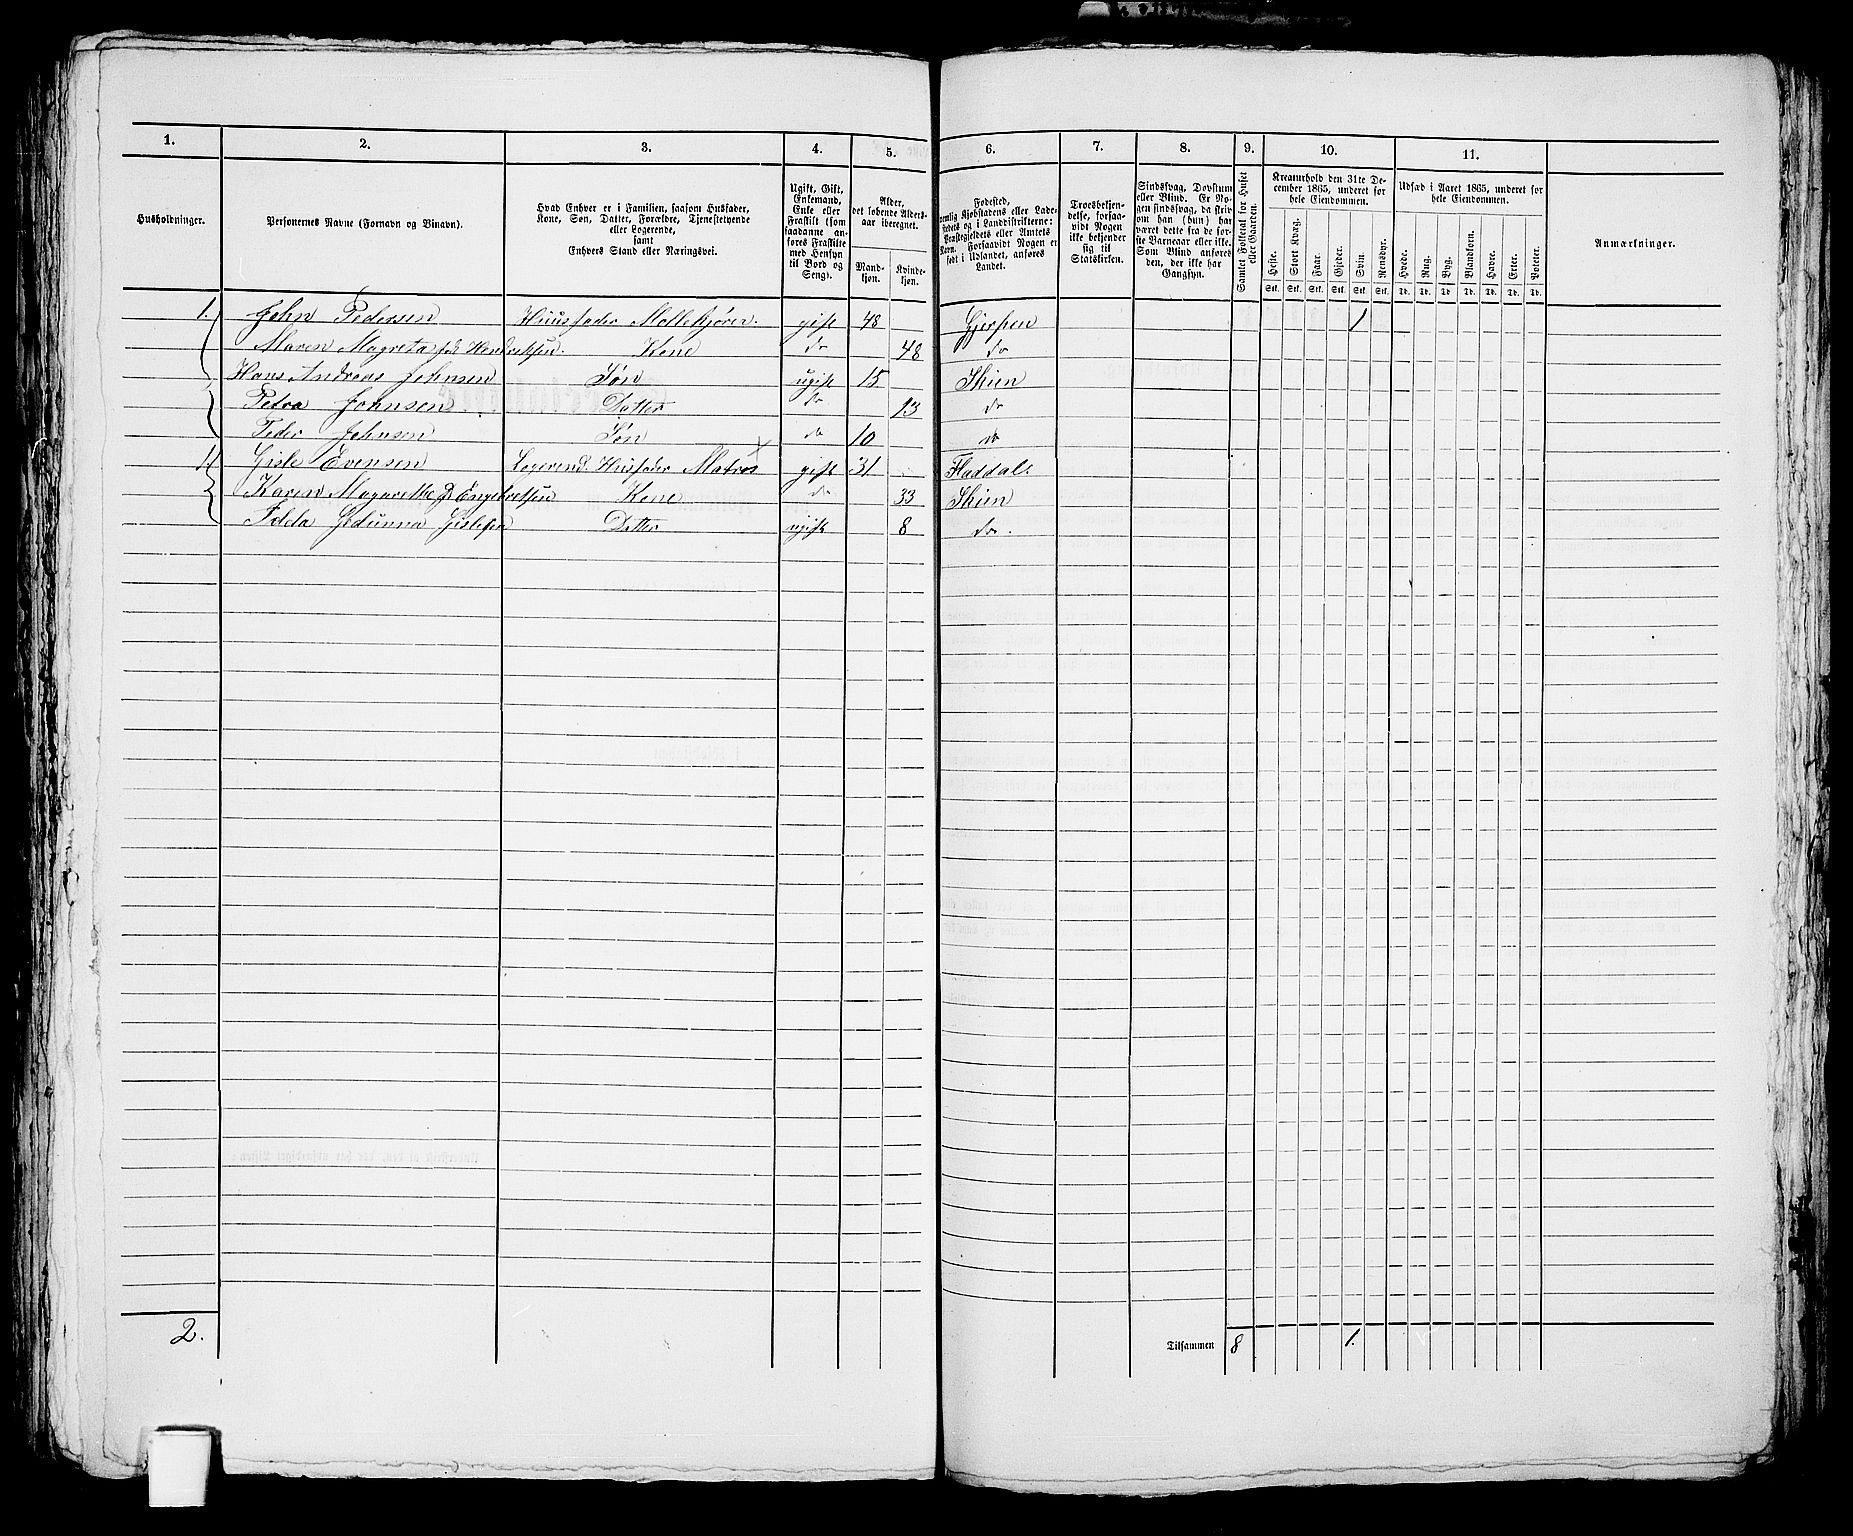 1. 2. 3. 4. 5. 6. 7. 8. 9. 10. 11.
Husholdninger.
Personernes Navne (Fornavn og Binavn).
Hvad Enhver er i Familien, saasom Husfader,
Kone, Søn, Datter, Forældre, Tjenestetyende
eller Logerende,
samt
Enhvers Stand eller Næringsvei.
Ugift, Gift,
Enkemand,
Enke eller
Fraskilt (som
saadanne an-
føres Fraskilte
med Hensyn
til Bord og
Seng).
Alder,
det løbende Alders-
aar iberegnet.
Mand-
kjøn.
Kvinde-
kjøn.
Fødested,
nemlig Kjøbstadens eller Lade-
stedets og i Landdistrikterne:
Præstegjeldets eller Amtets
Navn. Forsaavidt Nogen er
født i Udlandet, anføres
Landet.
Troesbekjen-
delse, forsaa-
vidt Nogen
ikke bekjender
sig til
Statskirken.
Sindssvag, Døvstum
eller Blind. Er No-
gen sindssvag, da skriv
om han (hun) har
været dette fra de før-
ste Barneaar eller ikke.
Som Blind anføres
den, der ikke har
Gangsyn.
Samlet Folketal for Huset
eller Gaarden.
Kreaturhold den 31te De-
cember 1865, underet for
hele Eiendommen.
Heste. Stort Kvæg. Faar. Gjeder. Svin. Rensdyr.
Stk. Stk. Stk. Stk. Stk. Stk.
Udsæd i Aaret 1865, underet for
hele Eiendommen.
Hvede. Rug. Byg. Blandkorn. Havre. Erter. Poteter.
Td. Td. Td. Td. Td. Td. Td.
Anmærkninger.
1. John Pedersen Huusfader Møllekjører. gift 48 Gjerpen 1
Maren Magreta Kone do 48 do
Hans Andreas Johnsen Søn ugift 15 Skien
Petra Johnsen Datter do 13 do
Peder Johnsen Søn do 10 do
1. Gisle Evensen Logerend. Husfader Matros gift 31 Fladdal.
Karen Magarethe Engebretsen Kone do 33 Skien
Gislesen Datter ugift 8 do.
2.
Tilsammen 8 1.